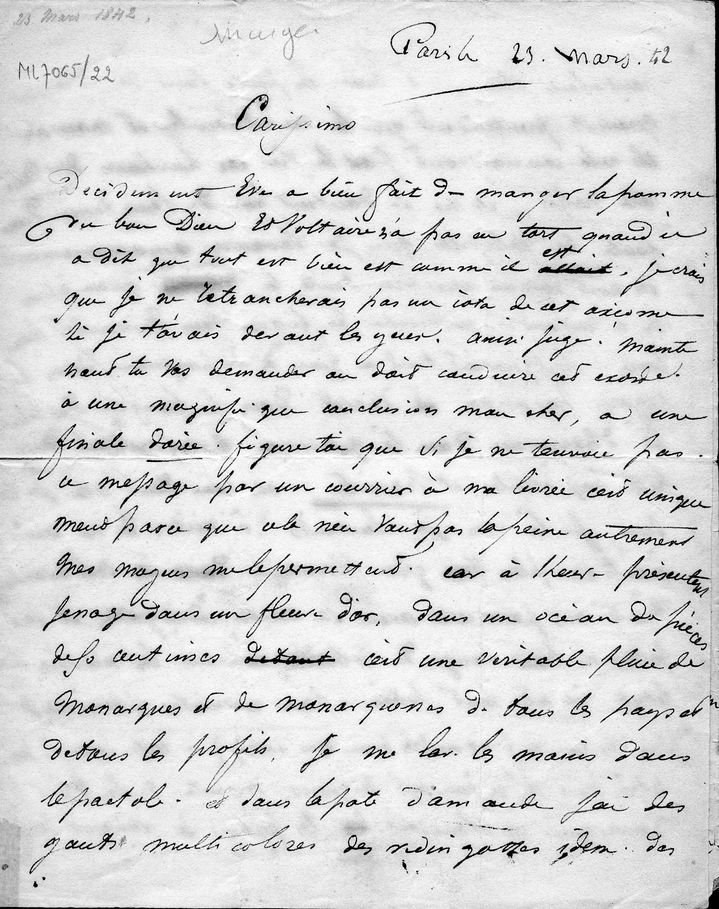 23 Mars 1842.
Murger
ML7065/22
Paris le 23. Mars. 42
Carissimo
Decidement Eve a bien fait de manger la pomme
du bon Dieu Et Voltaire n'a pas eu tort quand il
a dit que tout est bien est comme il est allait. je crois
que je ne retrancherais pas un iota de cet axiome
si je t'avais devant les yeux. ainsi juge! mainte
nant tu vas demander ou doit conduire cet exorde.
à une magnifique conclusion mon cher, a une
finale dorée. figure toi que si je ne t'envoie pas
ce message par un courrier à ma livrée c'est unique
ment parce que cela n'en vaut pas la peine autrement
mes moyens me le permettent. car à l'heure présente
je nage dans un fleuve d'or, dans un océan de pièces
de 50 centimes c'est une veritable pluie de
monarques et de monarquones de tous les pays et
de tous les profils. Je me lave les mains dans
le pactole. et dans la pate d'amande j'ai des
gants multicolores des redingottes idem. des